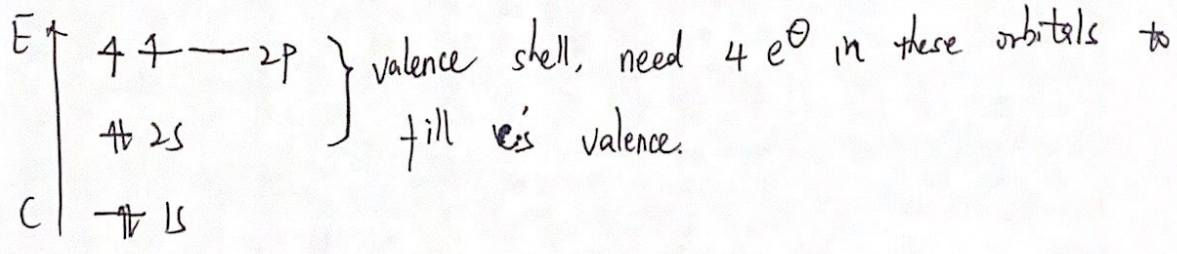 E 2p } valence shell, need 4 e⊖ in these orbitals to
2s fill c's valence.
C 1s